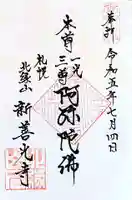 奉拝 令和五年七月四日
本尊
一光三尊
阿弥陀佛
札幌
北縁山
新善光寺